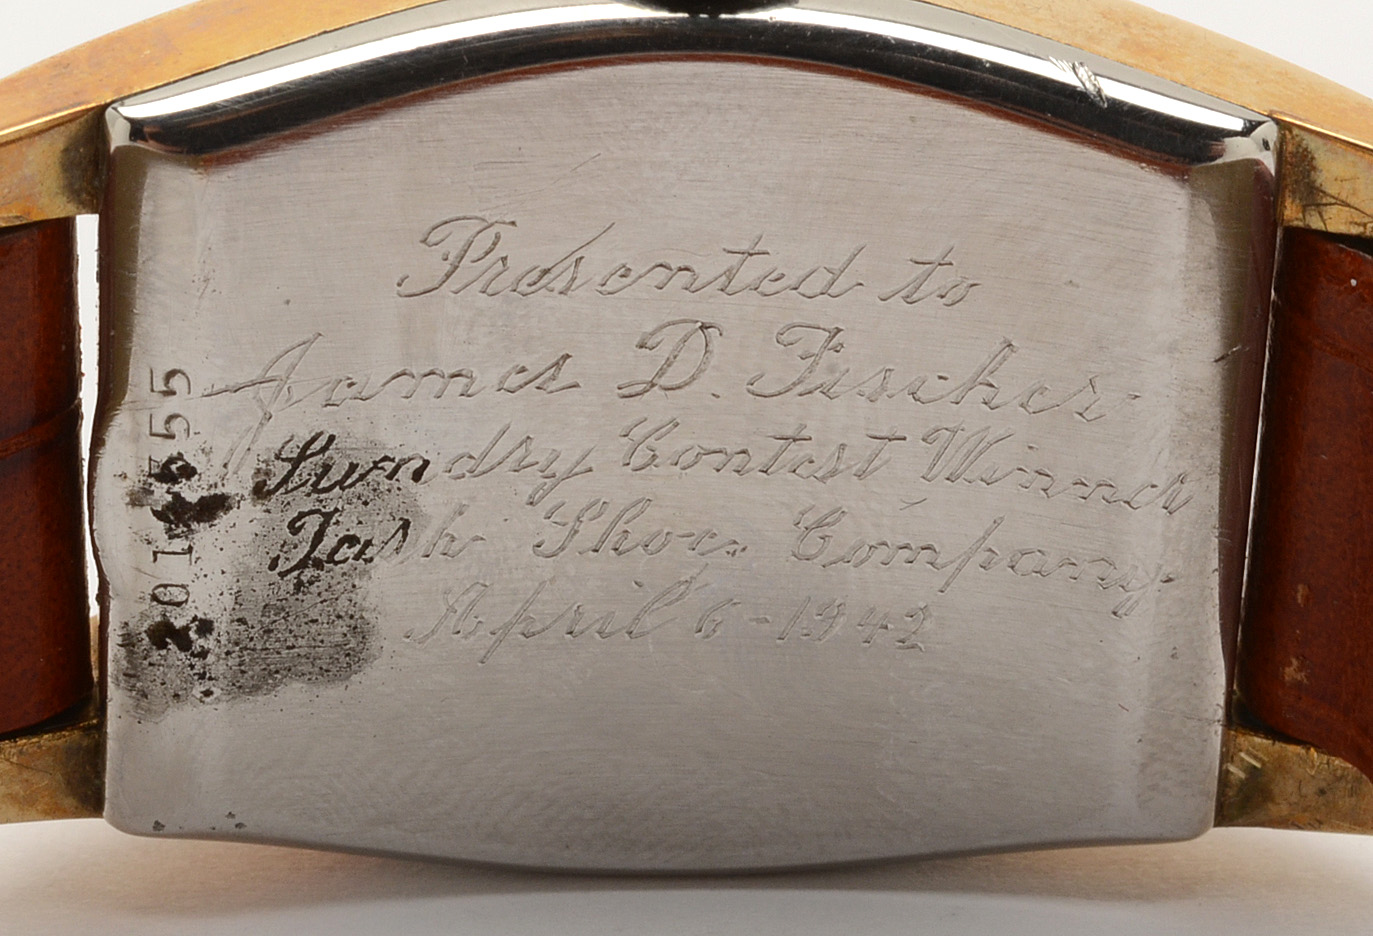 Presented to
James D. Fischer
Sundry Contest Winner
Shoe Company
April 6-1942